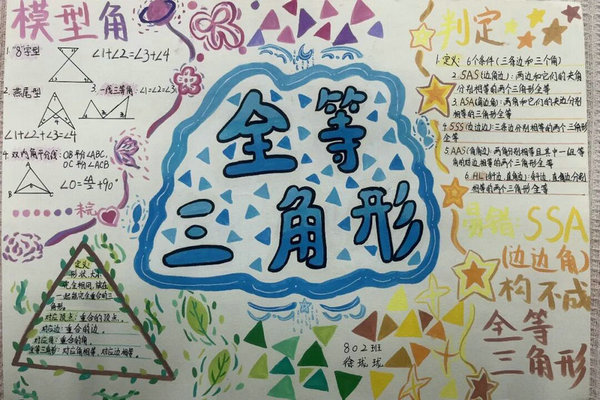 模型角
1."8"字型
∠1+∠2=∠3+∠4
2.燕尾型
3.一线三等角:∠1=∠2=∠3
∠1+∠2+∠3=∠4
4.双内角平分线:OB平分∠ABC,
OC平分∠ACB
∠O=
+90°
全等
三角形
判定
1.定义:6个条件(三角边和三个角)
2.SAS(边角边):两边和它们的夹角
分别相等的两个三角形全等
3.ASA(角边角):两角和它们的夹边分别
相等的两个三角形全等
4.SSS(边边边)三边分别相等的两个三角形
全等
5.AAS(角角边)两角分别相等且其中一组等
角的对边相等的两个三角形全等
6.HL(斜边,直角边):斜边、直角边分别
相等的两个三角形全等
易错 SSA
(边边角)
构不成
全等
三角形
定义:
形状、大小
完全相同,放在
一起能完全重合的三
角形。
对应顶点:重合的顶点。
对应边:重合的边。
对应角:重合的角。
全等三角形:对应角相等,对应边相等。
802班